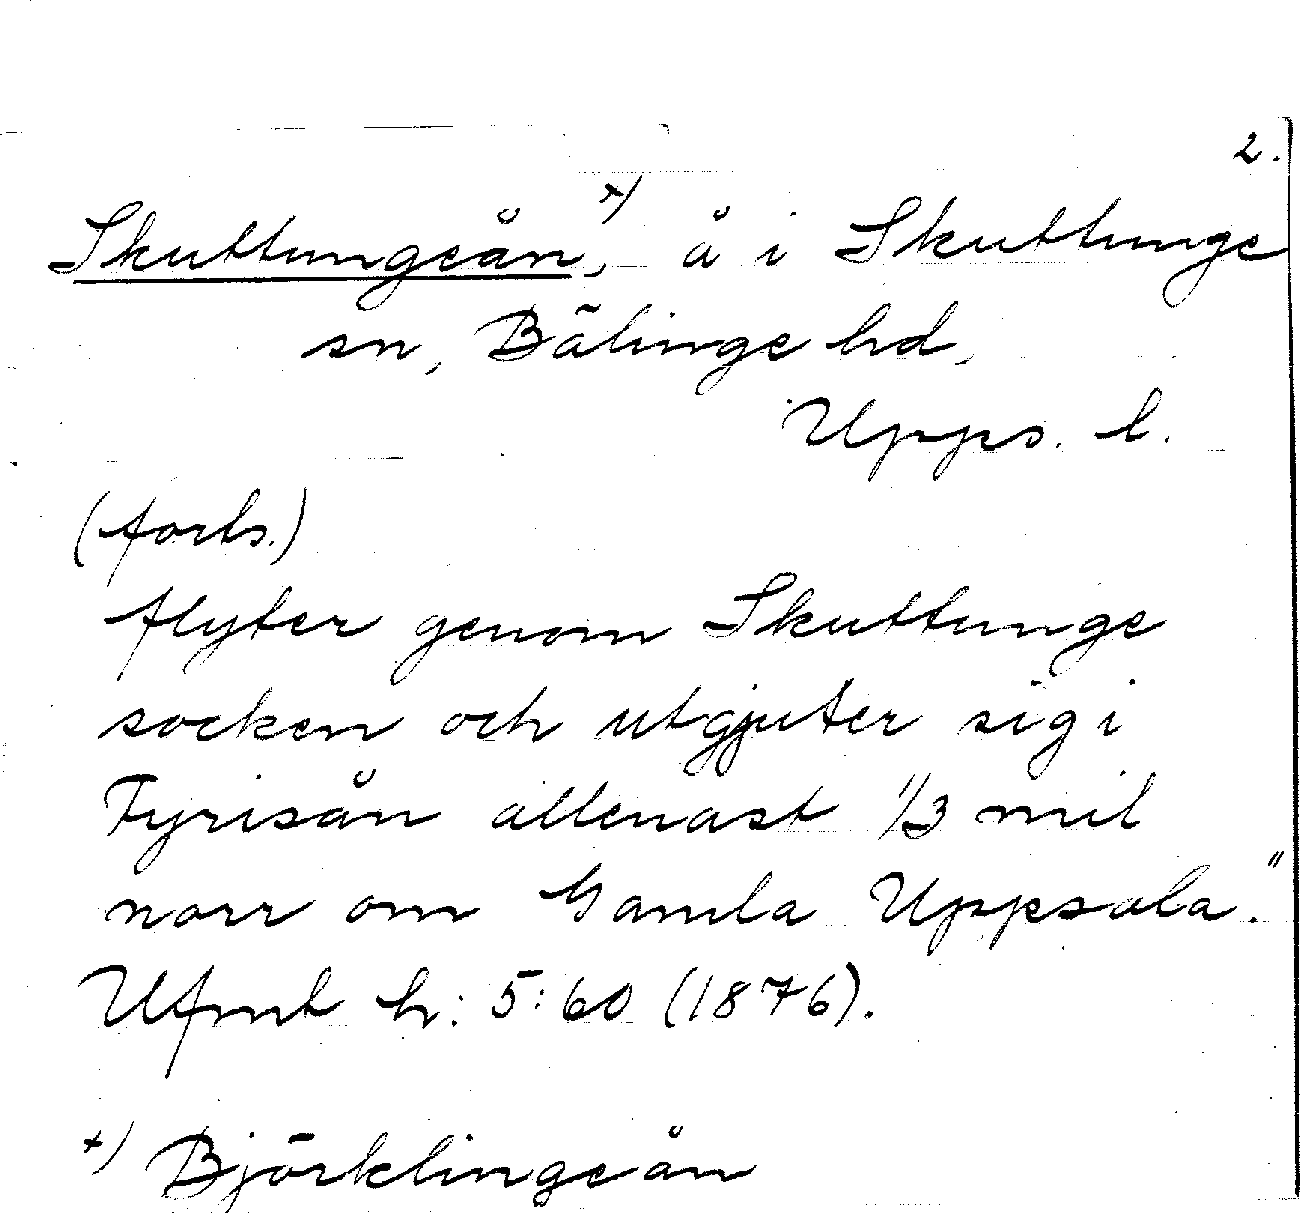 2.
Skuttungeån, +) å i Skuttunge
sn, Bälinge hd,
Upps. l.
(forts.)
flyter genom Skuttunge
socken och utgjuter sig i
Fyrisån allenast 1/3 mil
norr om Gamla Uppsala."
Ufmt h: 5:60 (1876).
+) Björklingeån